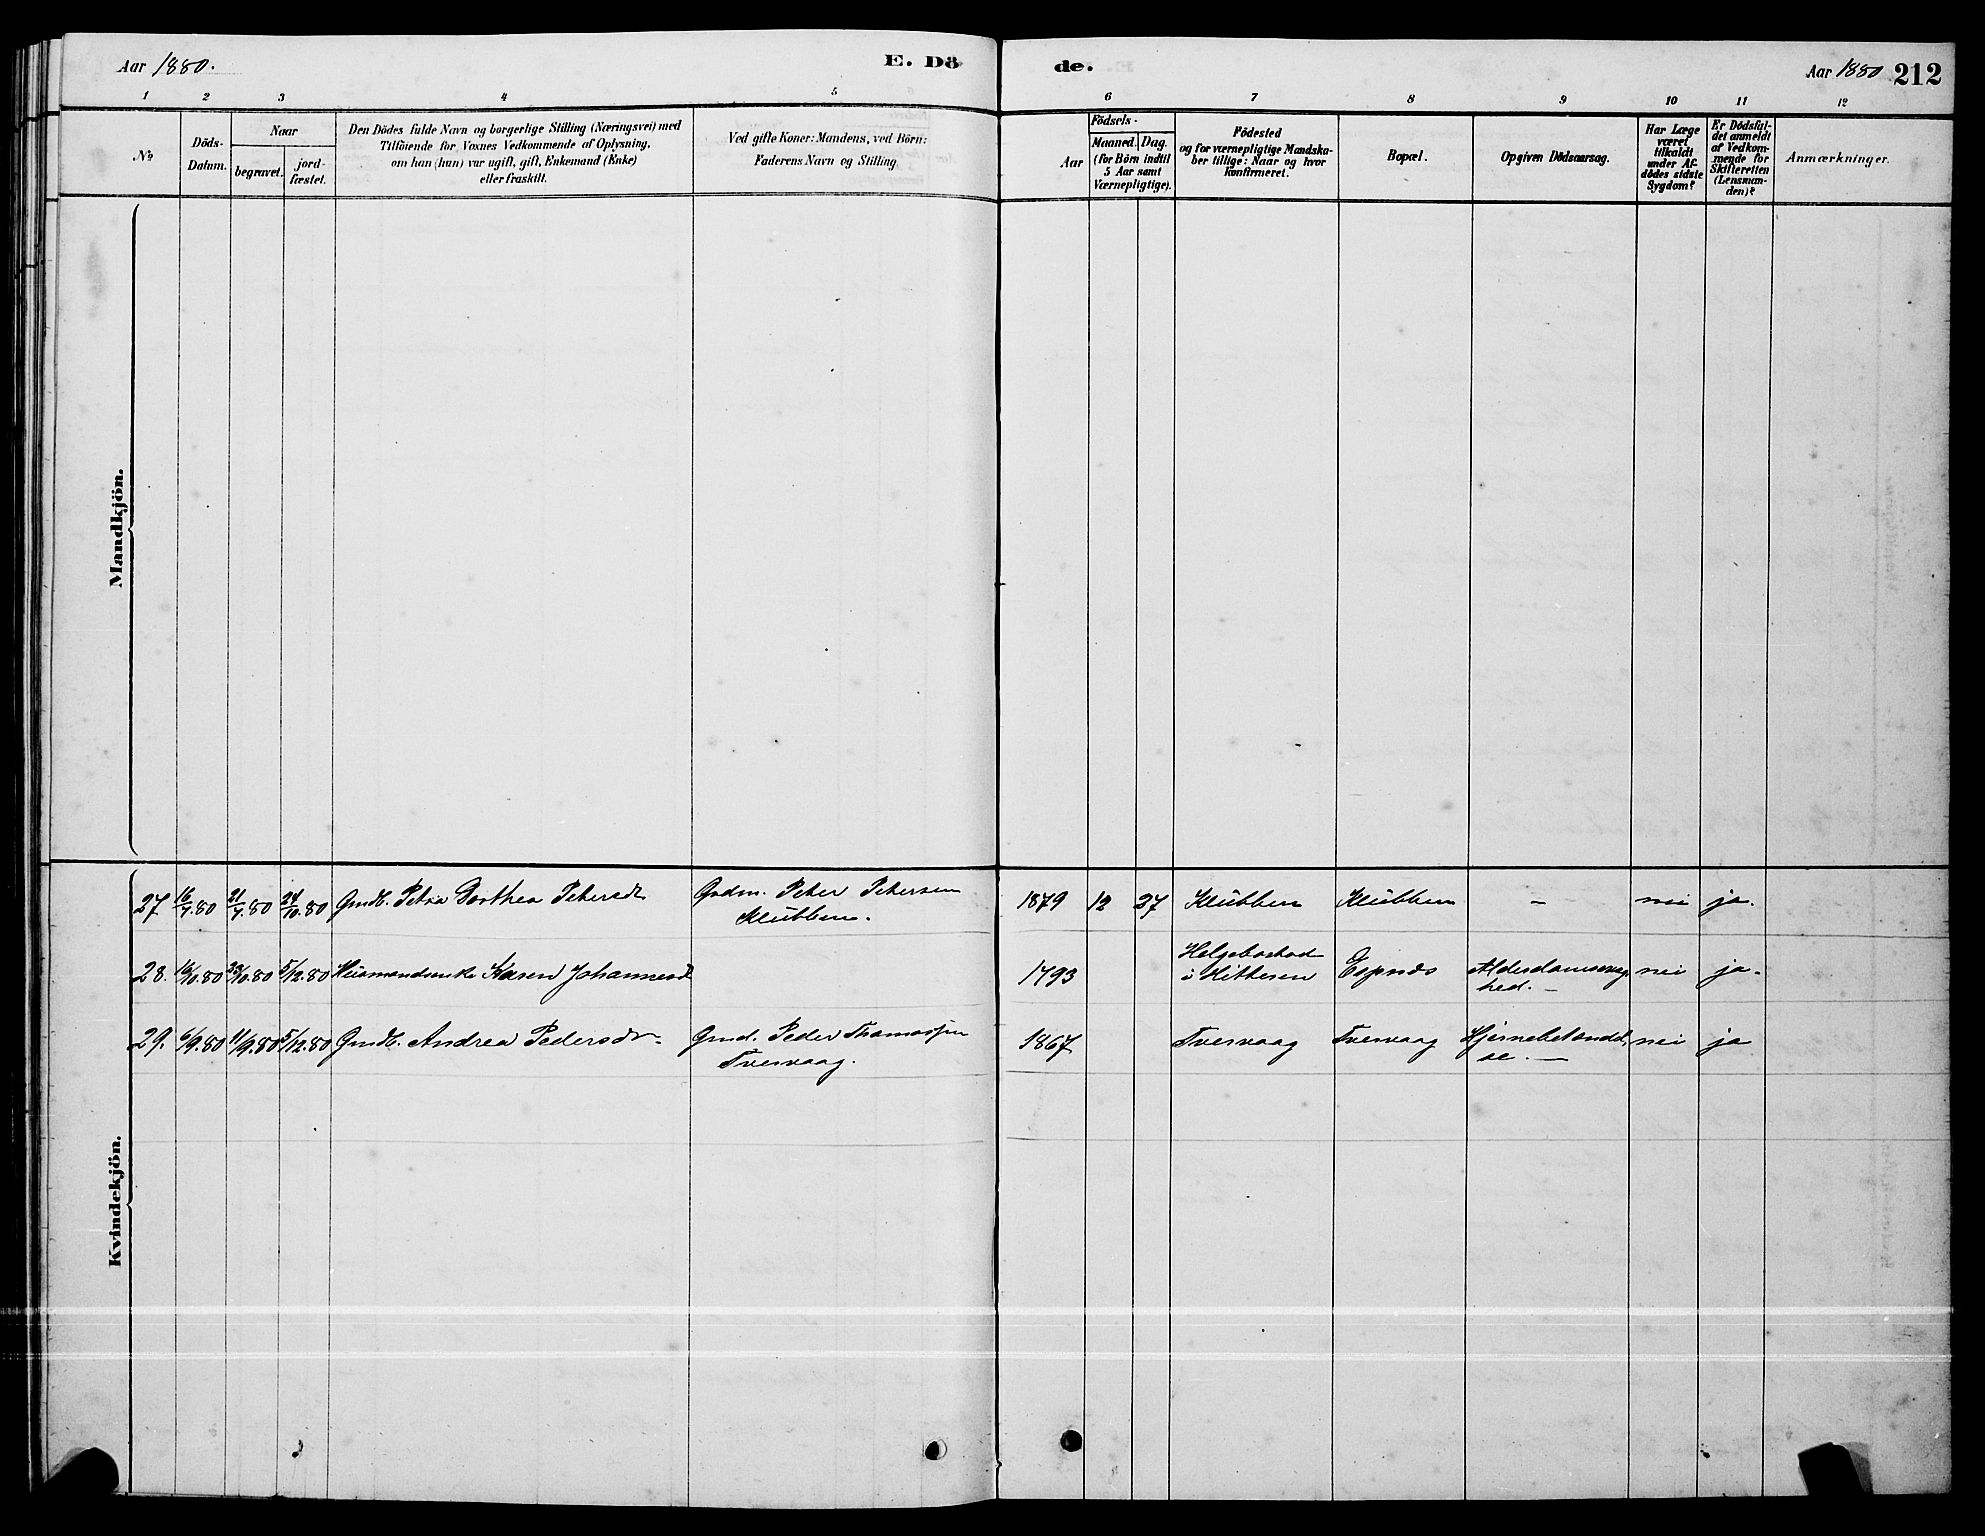 Aar 1880.
E. Dö
de.
Aar 1880
212
1 2 3 4 5 6 7 8 9 10 11 12
No
Döds-
Datum.
Naar
begravet.
jord-
fæstet.
Den Dödes fulde Navn og borgerlige Stilling (Næringsvei) med
Tilföiende for Voxnes Vedkommende af Oplysning,
om han (hun) var ugift, gift, Enkemand (Enke)
eller fraskilt.
Ved gifte Koner: Mandens, ved Börn:
Faderens Navn og Stilling
Födsels-
Aar
Maaned.
Dag.
(for Börn indtil
5 Aar samt
Værnepligtige).
Födested
og for værnepligtige Mandska-
ber tillige: Naar og hvor
konfirmeret.
Bopæl.
Opgiven Dödsaarsag.
Har Læge
været
tilkaldt
under Af-
dödes sidste
Sygdom?
Er Dödsfal-
det anmeldt
af Vedkom-
mende for
Skifteretten
(Lensman-
den)?
Anmærkninger.
Mandkjön.
Kvindekjön.
27 16/7.80 21/7.80 24/10.80 Gmdt. Petra Dorthea Petersdt Gmdm. Peter Petersen 1879 12 27 Klubben Klubben — nei ja.
Klubben.
28. 16/10.80 23/10.80 5/12.80 Huusmandsenke Karen Johannesdt 1793 Helgebostad Espnæs Alderdomssvag- nei ja.
i Hitteren
hed. —
29. 6/9.80 11/9.80 5/12.80 Gmdt. Andrea Pedersdtr. Gmd. Peder Thomassen 1867 Tvervaag Tvervaag Hjernebetændel- nei ja
Tvervaag.
se. —